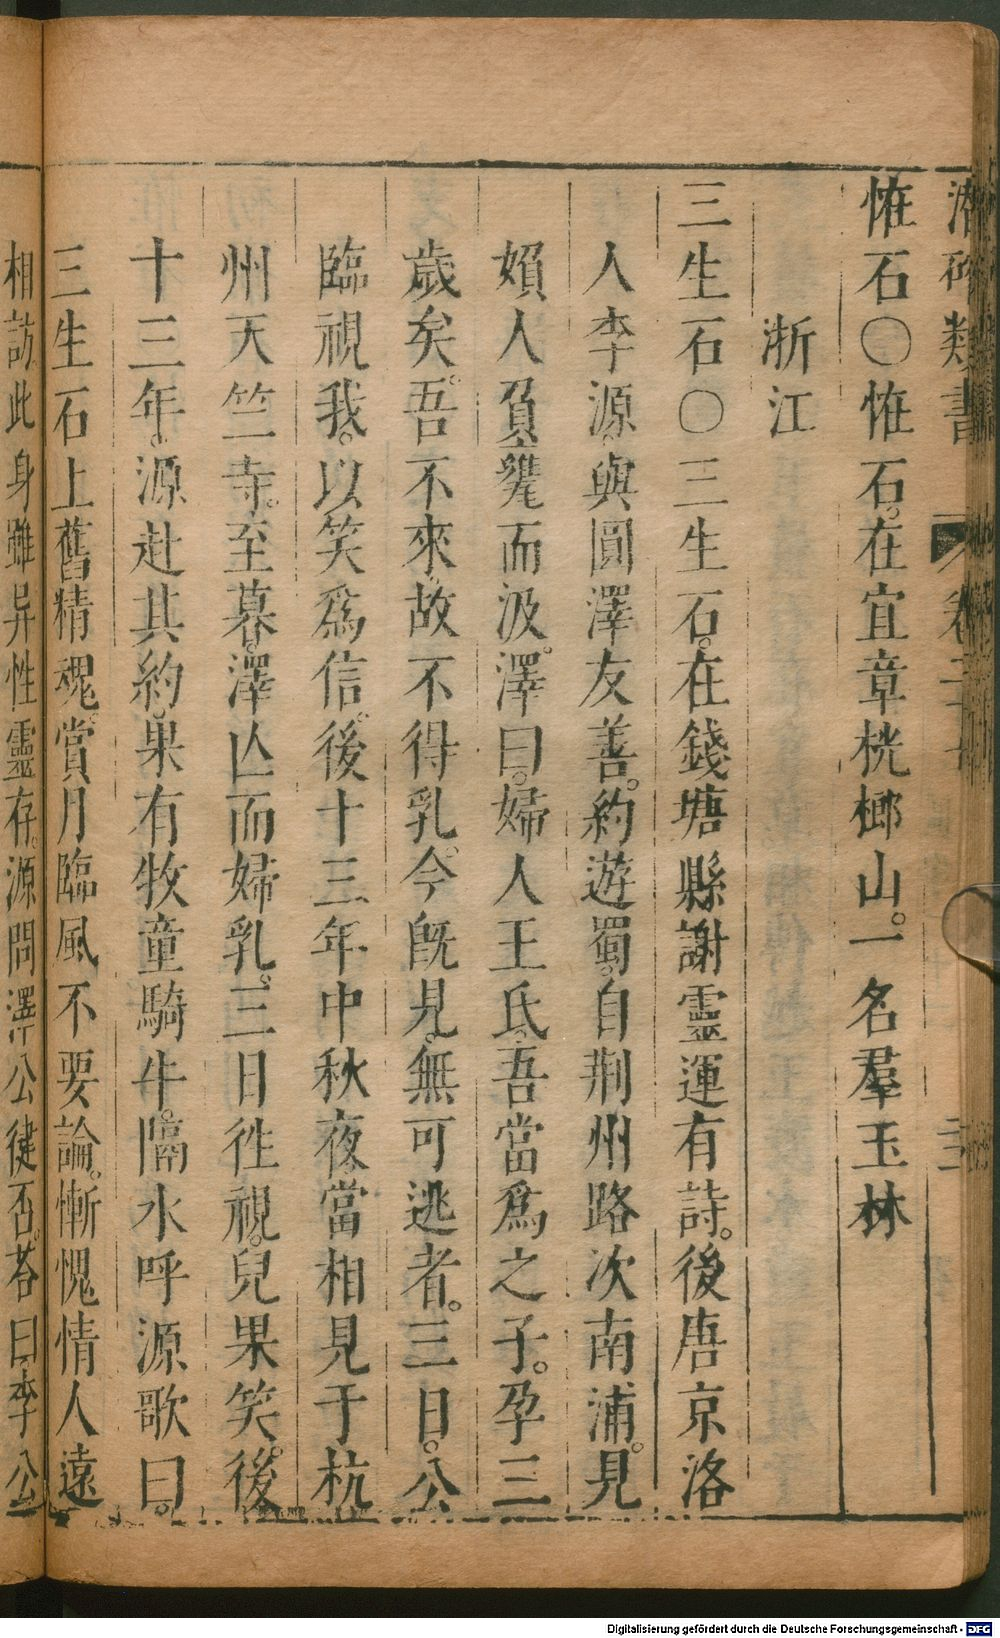 潛確類書 卷三十 三
恠石〇恠石。在宜章桄榔山。一名羣玉林
浙江
三生石〇三生石。在錢塘縣謝靈運有詩。後唐京洛
人李源。與圓澤友善。約遊蜀。自荆州路次南浦。見
婦人負甕而汲。澤曰。婦人王氏。吾當爲之子。孕三
歲矣。吾不來。故不得乳。今旣見。無可逃者。三日。公
臨視我。以笑爲信。後十三年中秋夜。當相見于杭
州天竺寺。至暮。澤亾而婦乳。三日徃視。兒果笑。後
十三年。源赴其約。果有牧童騎牛。隔水呼源歌曰。
三生石上舊精魂。賞月臨風不要論。慚愧情人遠
相訪此身雖异性靈存。源問澤公健否。荅曰李公
Digitalisierung gefördert durch die Deutsche Forschungsgemeinschaft - DFG